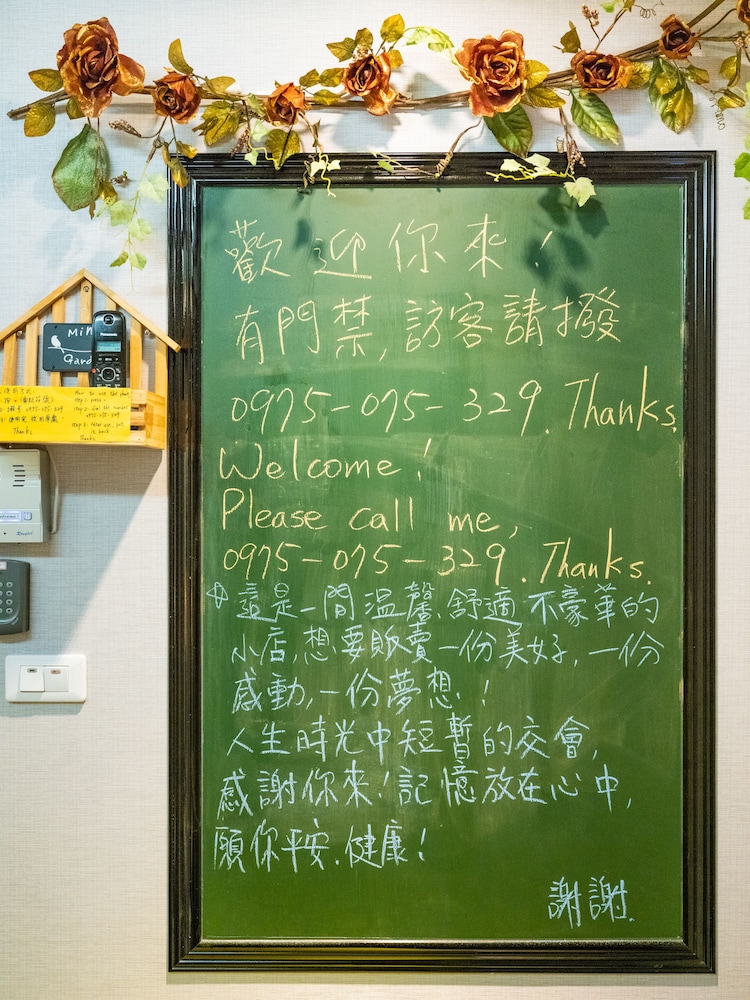 歡迎你來!
有門禁,訪客請撥
0975-075-329. Thanks.
Welcome!
Please call me,
0975-075-329. Thanks.
☆這是一間溫馨、舒適不豪華的
小店,想要販賣一份美好,一份
感動,一份夢想!
人生時光中短暫的交會,
感謝你來!記憶放在心中,
願你平安.健康!
謝謝.
Panasonic
How to use the phone
Thanks
Thanks